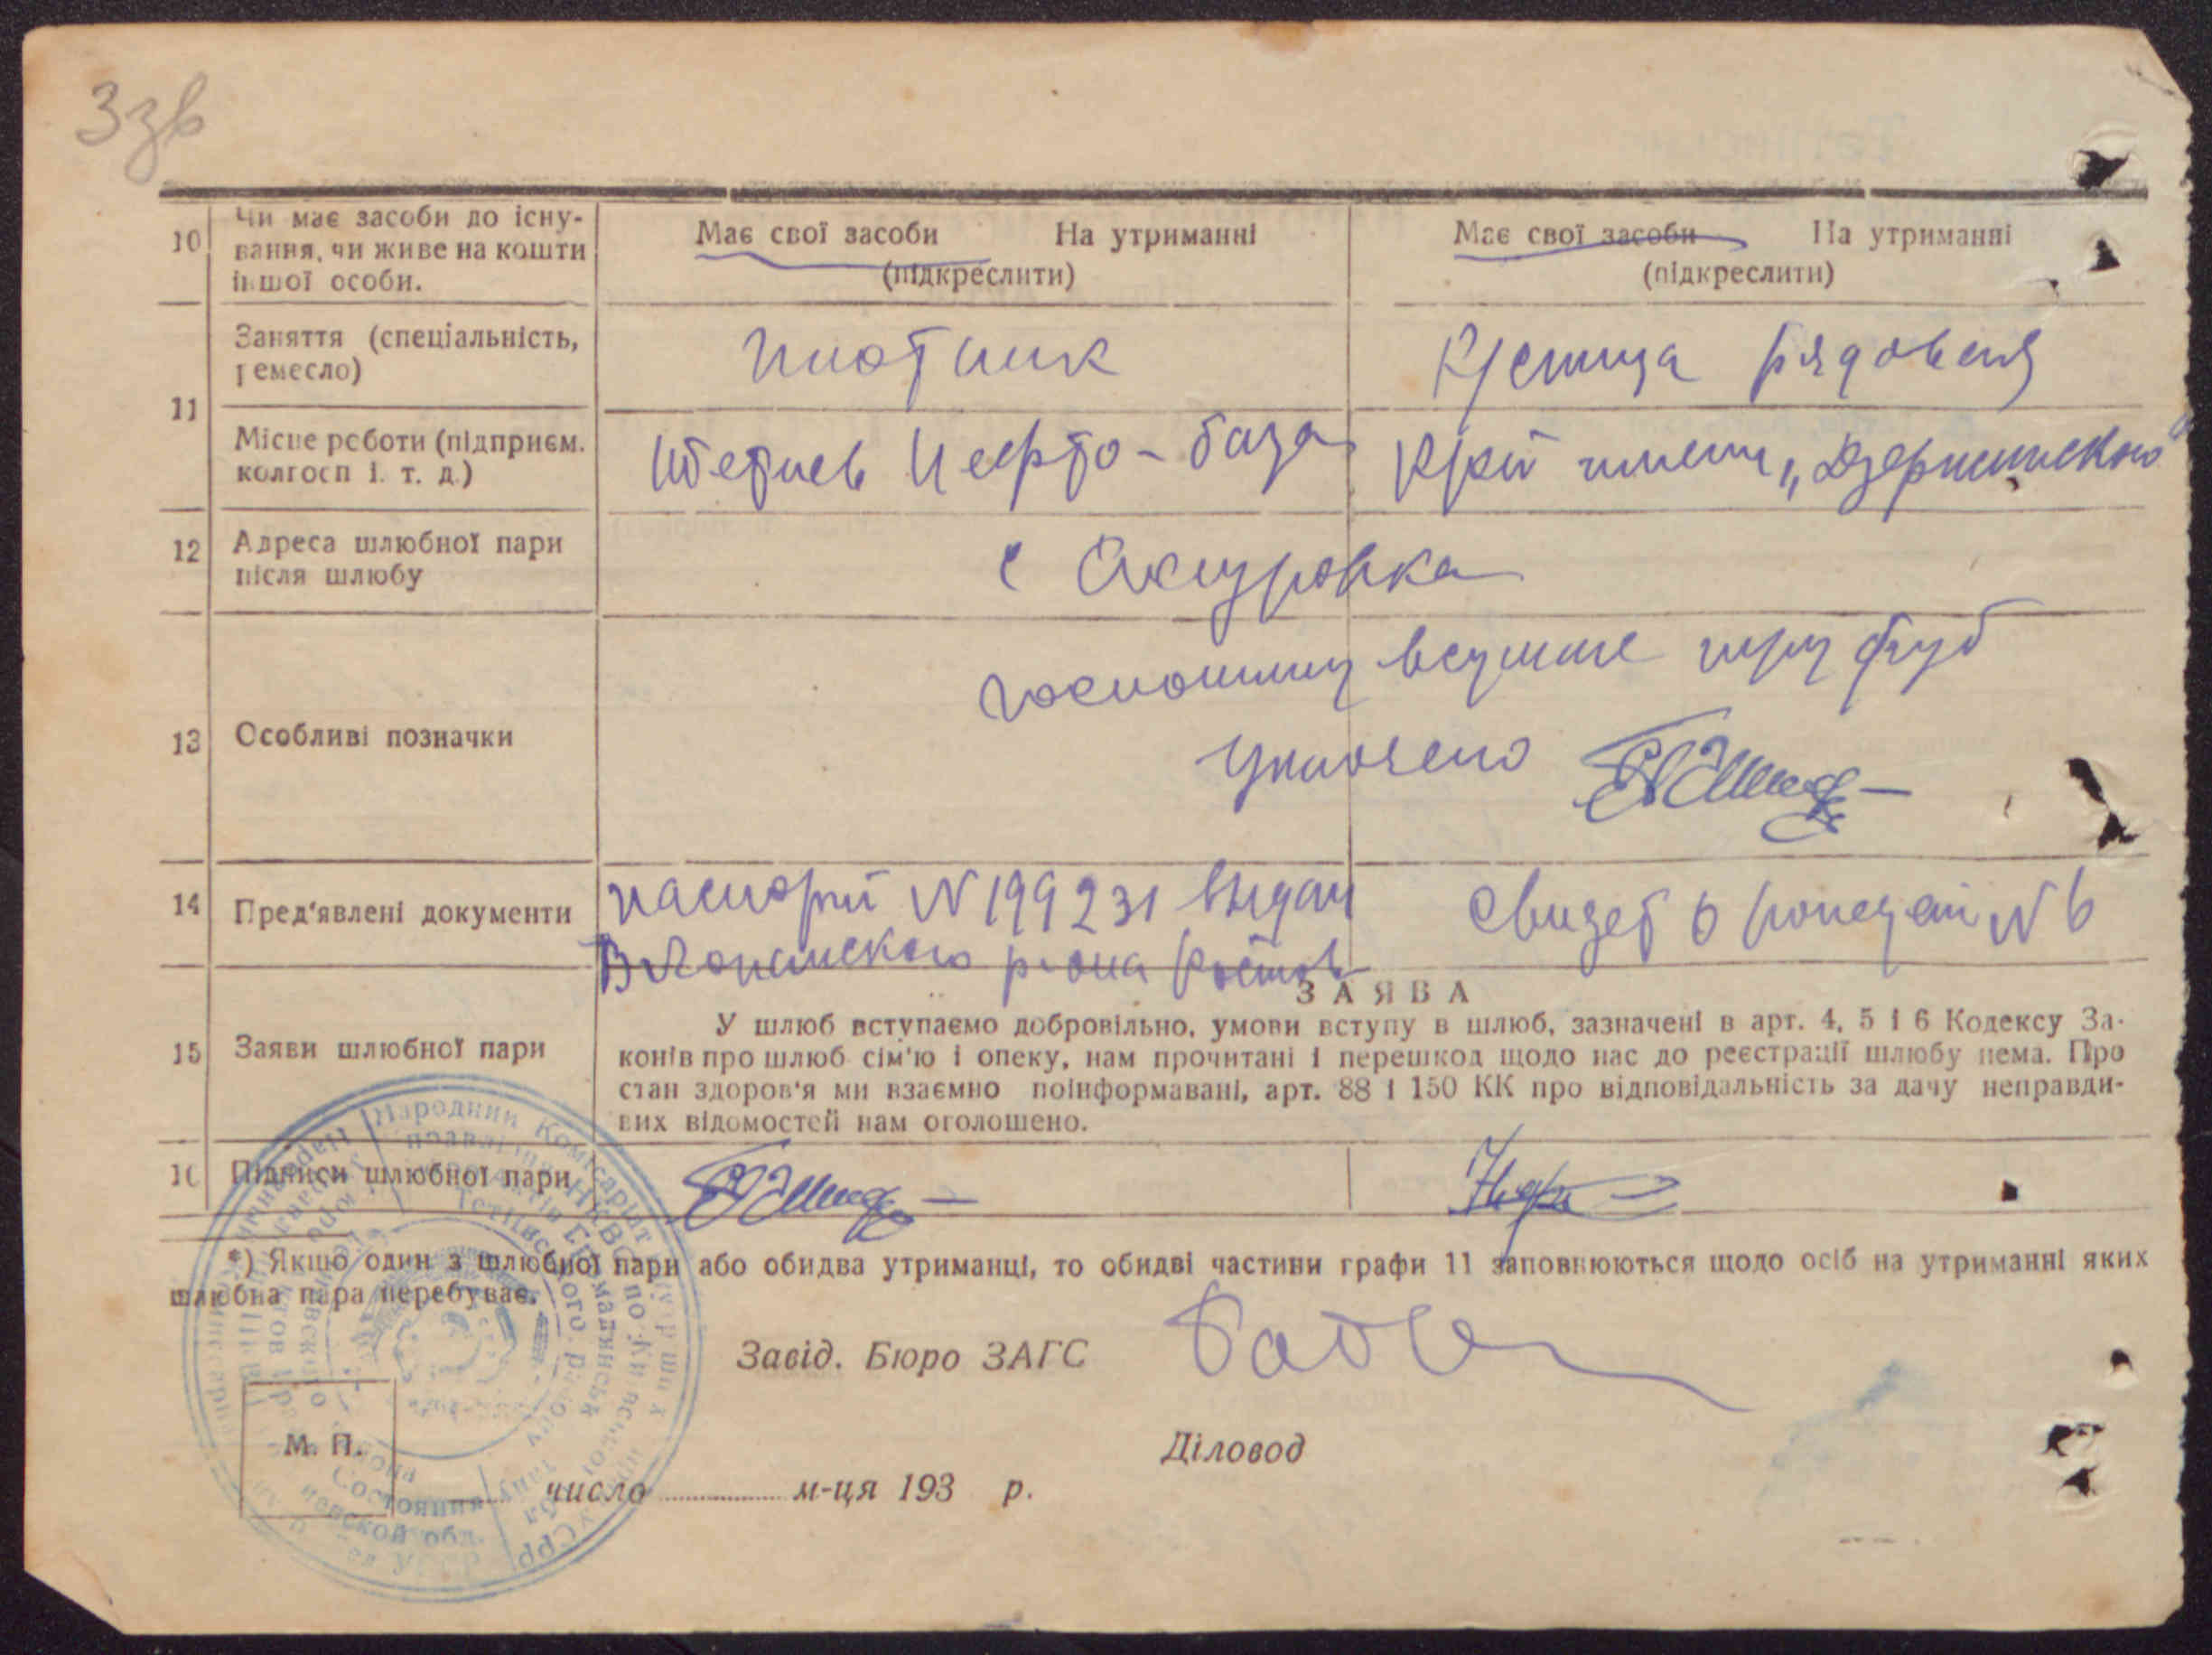 33в
10
Чи має засоби до існу-
вання, чи живе на кошти
іншої особи.
Має свої засоби На утриманні
(підкреслити)
Має свої засоби На утриманні
(підкреслити)
11
Заняття (спеціальність,
ремесло)
плотник
рядовая
Місце роботи (підприєм.
колгосп і. т. д.)
Нефто-база
имени „Дзержинского"
12
Адреса шлюбної пари
після шлюбу
с
13
Особливі позначки
три руб
уплочено
14
Пред'явлені документи
паспорт N 199231 выдан
р-она Ростов
Свидет о рожден N 6
15
Заяви шлюбної пари
ЗАЯВА
У шлюб вступаємо добровільно, умови вступу в шлюб, зазначені в арт. 4, 5 і 6 Кодексу За-
конів про шлюб сім'ю і опеку, нам прочитані і перешкод щодо нас до реєстрації шлюбу нема. Про
стан здоров'я ми взаємно поінформавані, арт. 88 і 150 КК про відповідальність за дачу неправди-
вих відомостей нам оголошено.
16
Підписи шлюбної пари
*) Якщо один з шлюбної пари або обидва утриманці, то обидві частини графи 11 заповнюються щодо осіб на утриманні яких
шлюбна пара перебуває.
Завід. Бюро ЗАГС
Діловод
М. П.
число м-ця 193 р.
Народний Комісаріат Внутрішніх